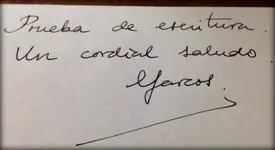 Prueba de escritura.
Un cordial saludo.
Marcos.